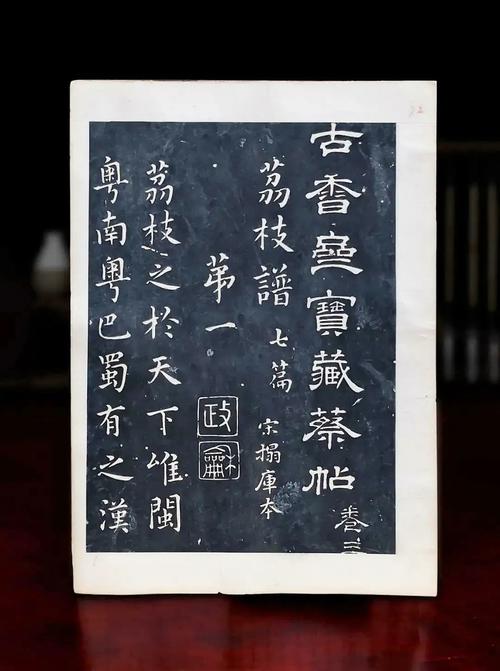 古香齋寶藏蔡帖 卷
荔枝譜 七篇 宋搨庫本
苐一
政龢
荔枝之於天下唯閩
粵南粵巴蜀有之漢